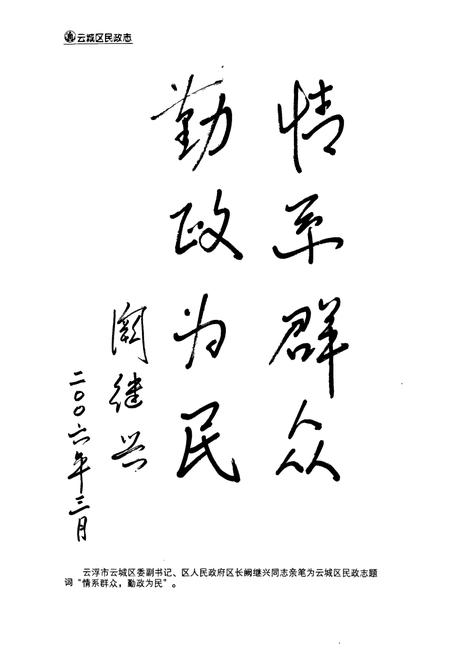 云城区民政志
情系群众
勤政为民
阚继兴
二〇〇六年三月
云浮市云城区委副书记、区人民政府区长阚继兴同志亲笔为云城区民政志题
词“情系群众，勤政为民”。